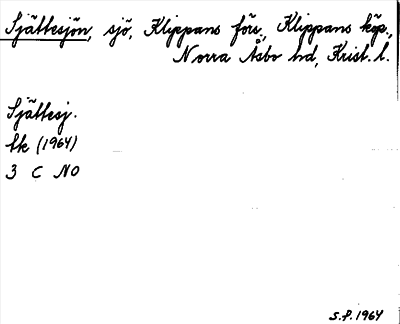 Sjättesjön, sjö, Klippans förs., Klippans köp.,
Norra Åsbo hd, Krist. l.
Sjättesj.
Ek (1964)
3 C NO
S.F. 1964